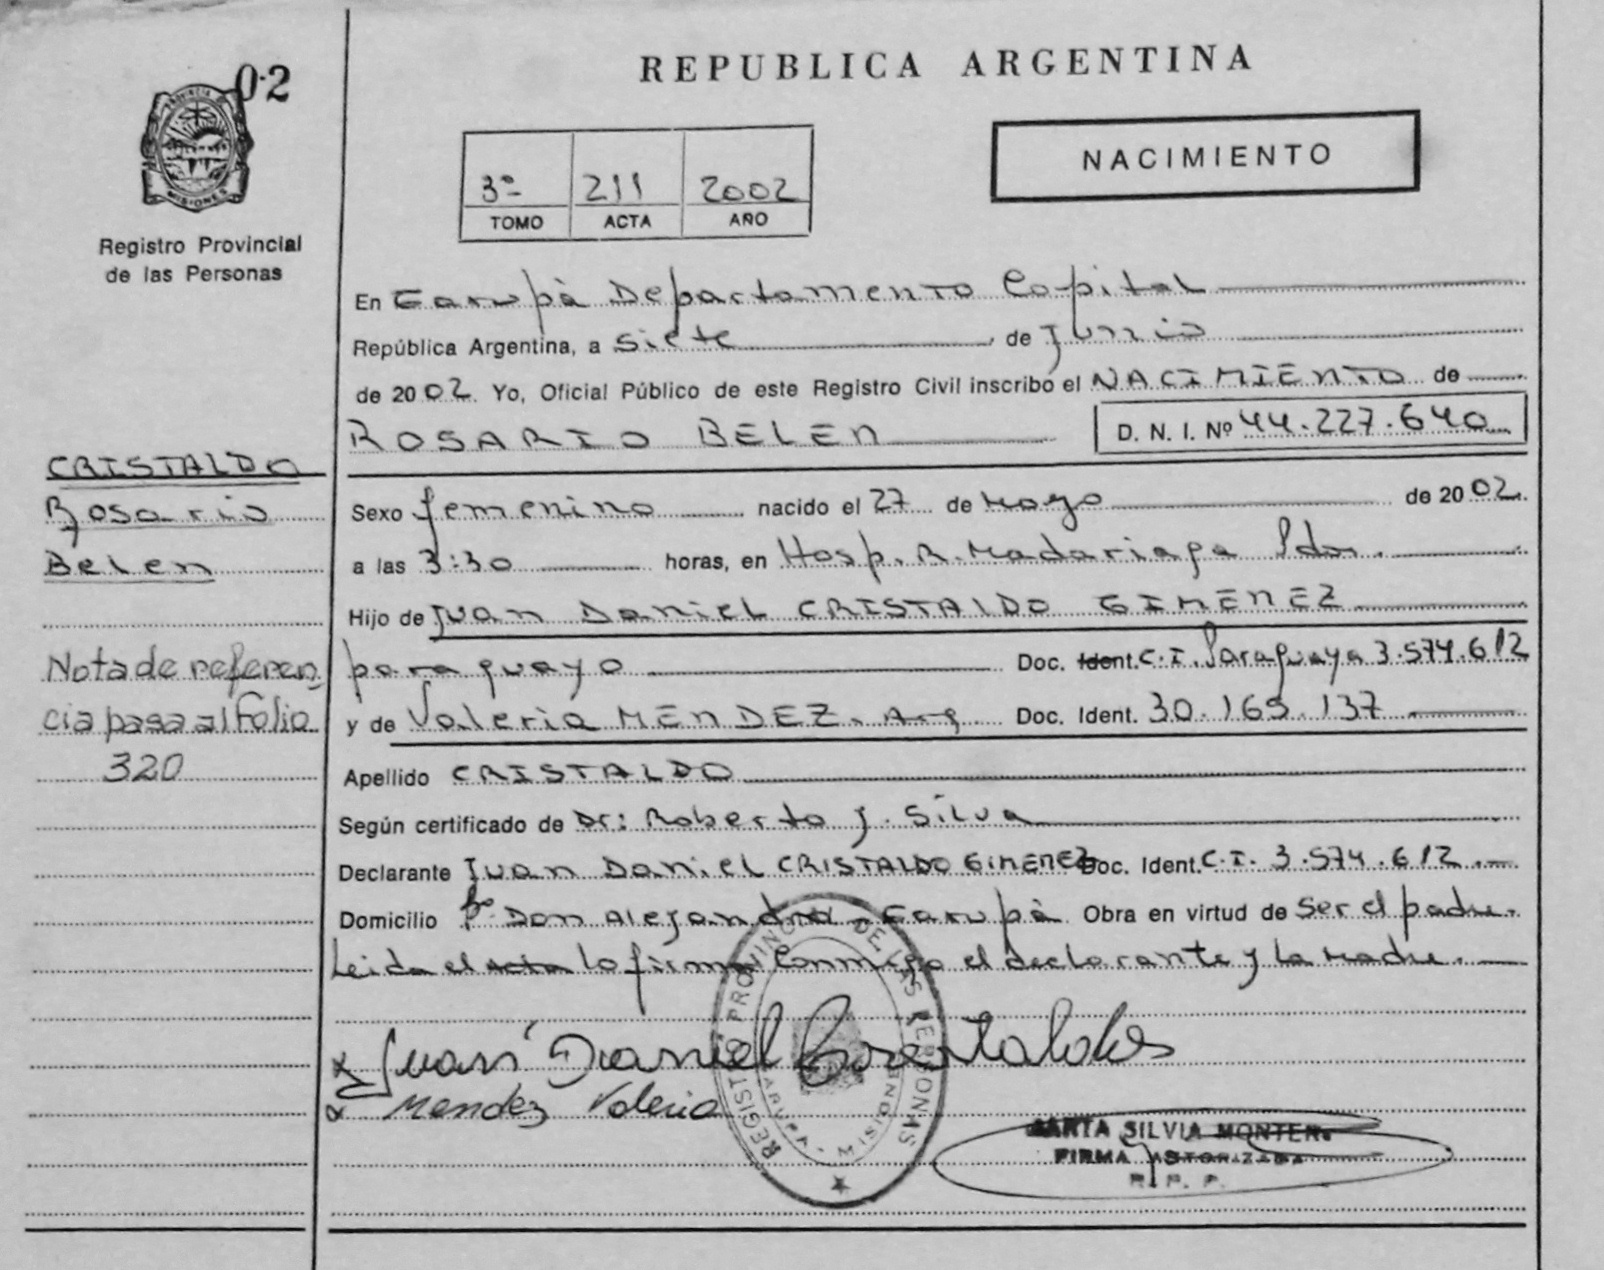 02
PROVINCIA DE
MISIONES
Registro Provincial
de las Personas
REPUBLICA ARGENTINA
3º 211 2002
TOMO ACTA AÑO
NACIMIENTO
En Garupà Departamento Capital
República Argentina, a siete, de Junio
de 2002. Yo, Oficial Público de este Registro Civil inscribo el NACIMIENTO de
ROSARIO BELEN D. N. I. Nº 44.227.640
CRISTALDO
Rosario
Belen
Nota de referen
cia pasa al Folio
320
Sexo femenino nacido el 27 de Mayo de 2002.
a las 3:30 horas, en Hosp. R. Madariaga Pdas.
Hijo de Juan Daniel CRISTALDO GIMENEZ
paraguayo Doc. Ident. C.I. Paraguaya 3.574.612
y de Valeria MENDEZ. Arg Doc. Ident. 30.169.137
Apellido CRISTALDO
Según certificado de Dr: Roberto J. Silva
Declarante Juan Daniel CRISTALDO GIMENEZ Doc. Ident. C.I. 3.574.612.
Domicilio Bº Don Alejandro - Garupà Obra en virtud de ser el padre.
Leida el acta lo firma conmigo el declarante y la Madre.
x Juan Daniel Cristaldo
x Mendez Valeria
REGISTRO PROVINCIAL DE LAS PERSONAS
GARUPA - MISIONES
SILVIA MONTERO
FIRMA AUTORIZADA
R. P. P.